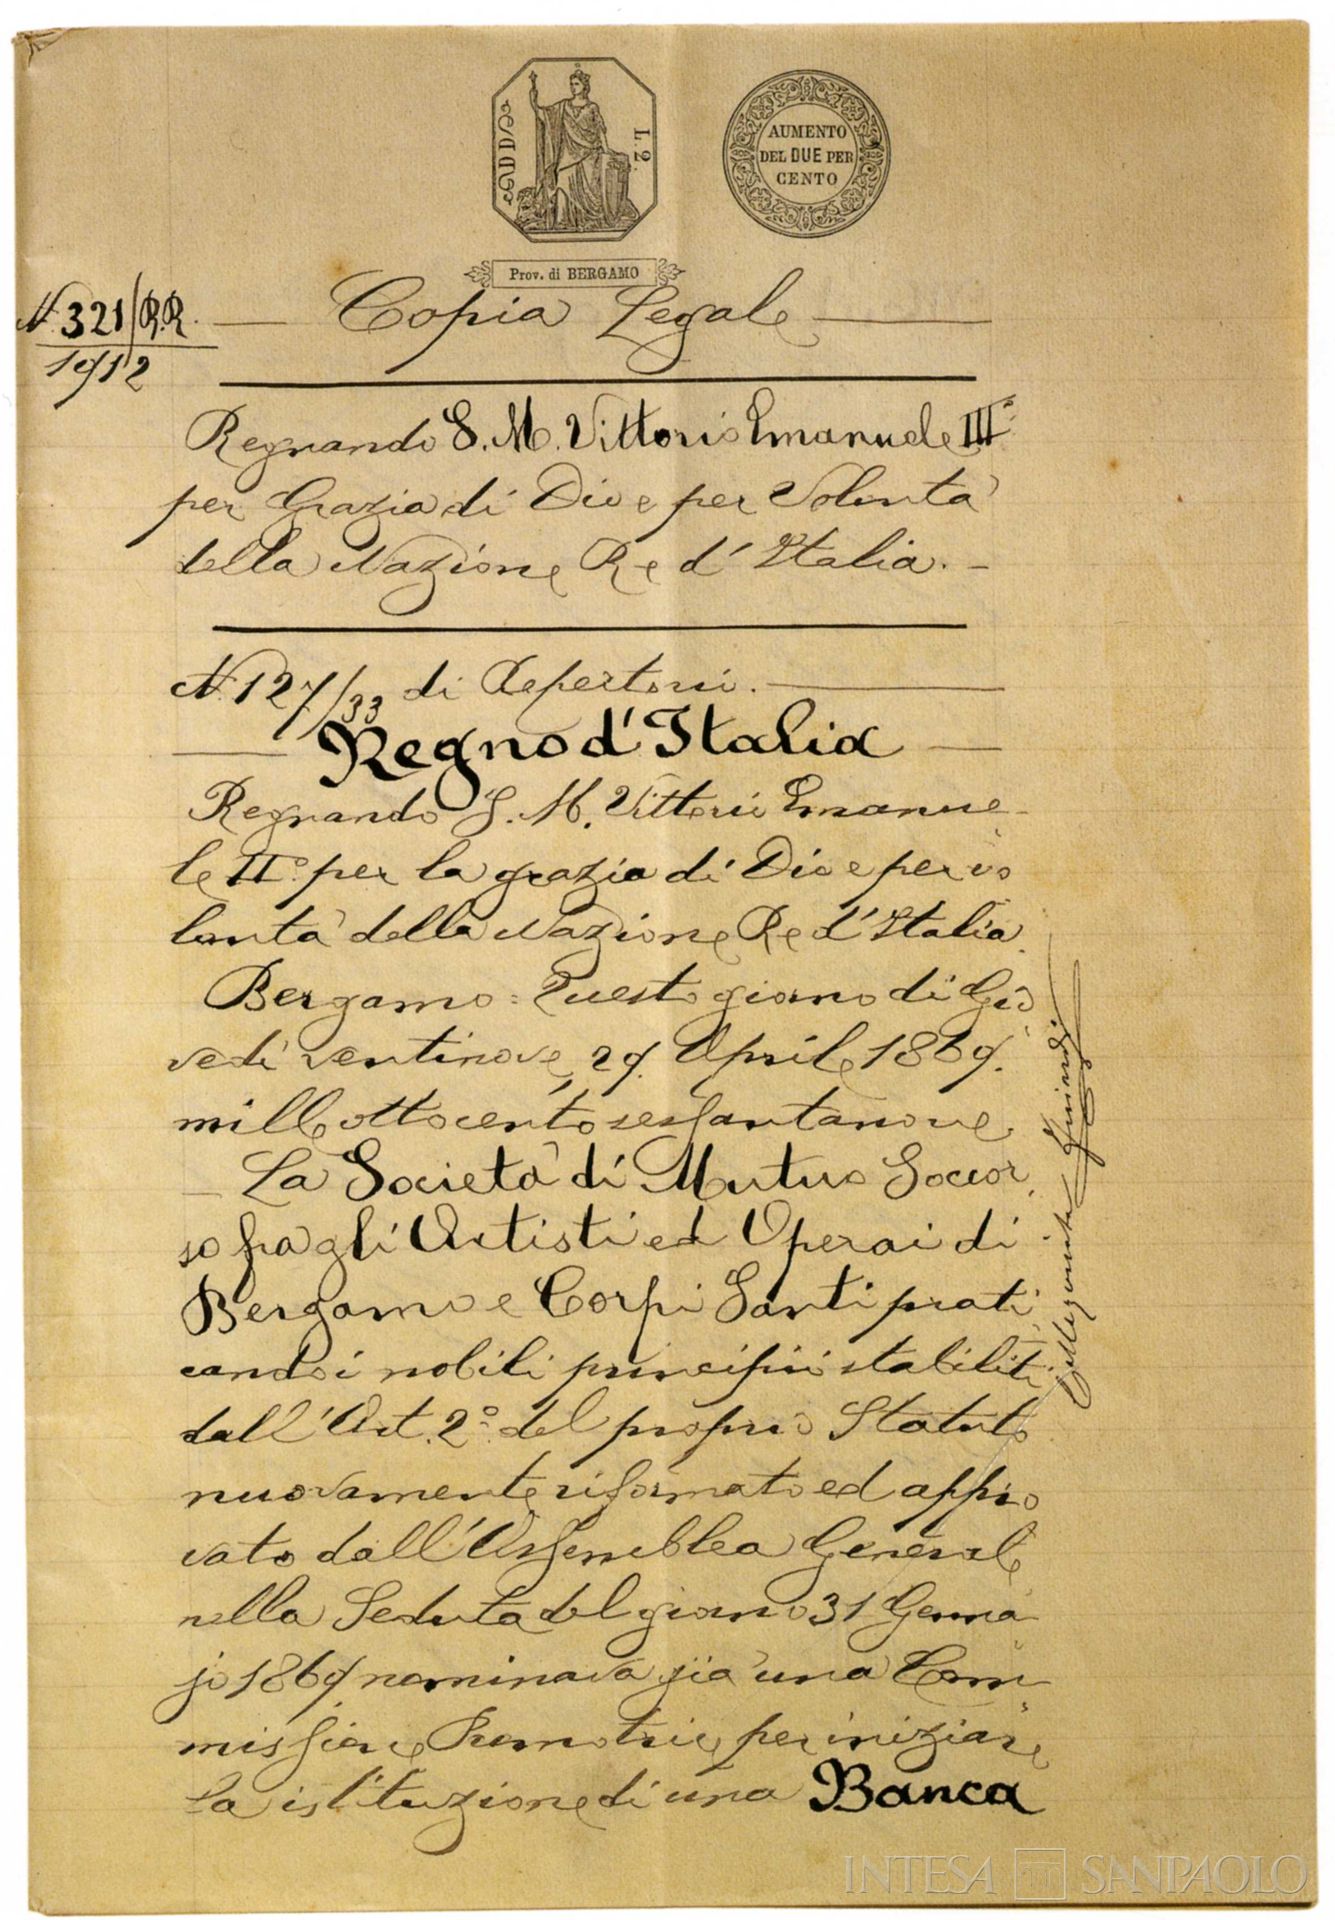 L. 2.
AUMENTO
DEL DUE PER
CENTO
Prov. di BERGAMO
N. 321/R.R.
1912
Copia Legale
Regnando S. M. Vittorio Emanuele III°
per Grazia di Dio e per Volontà
della Nazione Re d'Italia. -
N. 127/33 di Repertorio.
Regno d'Italia
Regnando S. M. Vittorio Emanue-
le II° per la grazia di Dio e per vo
lontà della Nazione Re d'Italia.
Bergamo = Questo giorno di Gio
vedì ventinove, 29. Aprile 1869.
mille ottocento sessantanove.
La Società di Mutuo Soccor,
so fra gli Artisti ed Operai di
Bergamo e Corpi Santi prati,
cando i nobili principii stabiliti
dall'Art. 2° del proprio Statuto
nuovamente riformato ed appro
vato dall'Assemblea Generale
nella Seduta del giorno 31 Genna
jo 1869 nominava già una Com
missione Promotrice per iniziare
la istituzione di una Banca
INTESA SANPAOLO